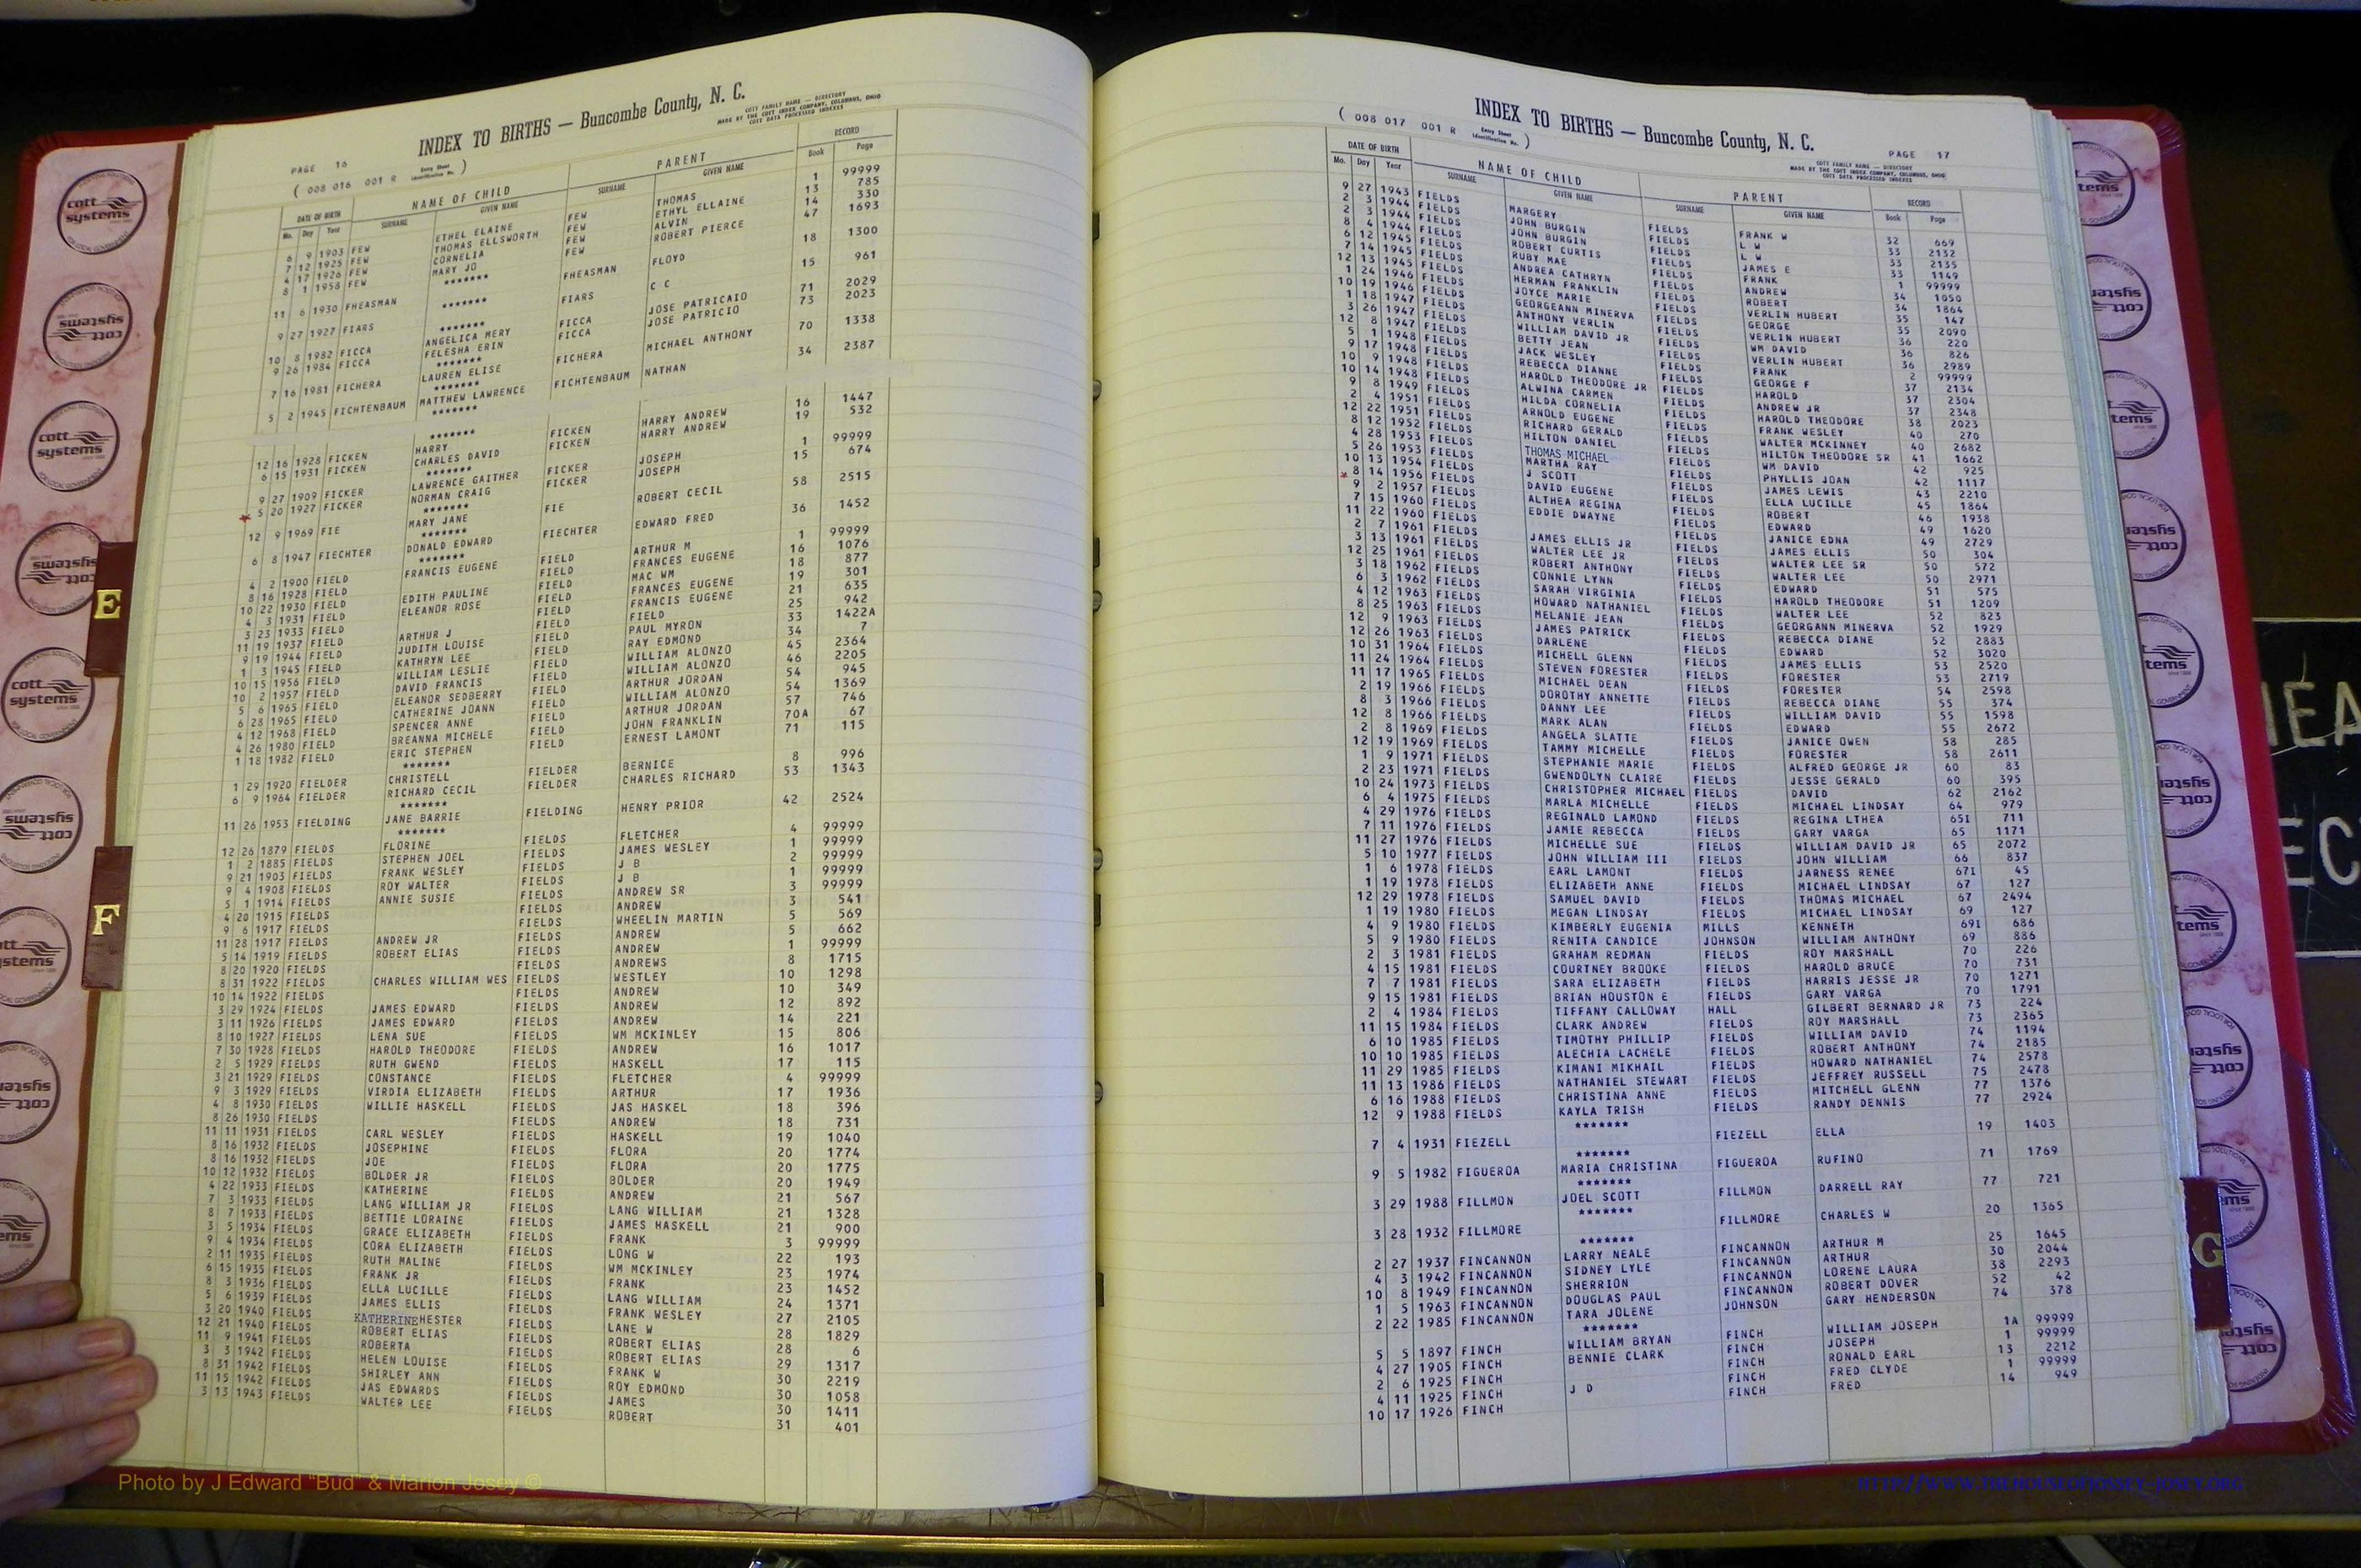 INDEX TO BIRTHS — Buncombe County, N. C.
COTT FAMILY NAME — DIRECTORY
MADE BY THE COTT INDEX COMPANY, COLUMBUS, OHIO
COTT DATA PROCESSED INDEXES
PAGE 16
( 008 016 001 R Entry Sheet Identification No. )
DATE OF BIRTH NAME OF CHILD PARENT RECORD
Mo. Day Year SURNAME GIVEN NAME SURNAME GIVEN NAME Book Page
6 9 1903 FEW ETHEL ELAINE FEW THOMAS 1 99999
7 12 1925 FEW THOMAS ELLSWORTH FEW ETHYL ELLAINE 13 785
4 17 1926 FEW CORNELIA FEW ALVIN 14 330
8 1 1958 FEW MARY JO FEW ROBERT PIERCE 47 1693
*******
11 6 1930 FHEASMAN FHEASMAN FLOYD 18 1300
*******
9 27 1927 FIARS FIARS C C 15 961
*******
10 8 1982 FICCA ANGELICA MERY FICCA JOSE PATRICAIO 71 2029
9 26 1984 FICCA FELESHA ERIN FICCA JOSE PATRICIO 73 2023
*******
7 16 1981 FICHERA LAUREN ELISE FICHERA MICHAEL ANTHONY 70 1338
*******
5 2 1945 FICHTENBAUM MATTHEW LAWRENCE FICHTENBAUM NATHAN 34 2387
*******
*******
12 16 1928 FICKEN HARRY FICKEN HARRY ANDREW 16 1447
6 15 1931 FICKEN CHARLES DAVID FICKEN HARRY ANDREW 19 532
*******
9 27 1909 FICKER LAWRENCE GAITHER FICKER JOSEPH 1 99999
5 20 1927 FICKER NORMAN CRAIG FICKER JOSEPH 15 674
*******
12 9 1969 FIE MARY JANE FIE ROBERT CECIL 58 2515
*******
6 8 1947 FIECHTER DONALD EDWARD FIECHTER EDWARD FRED 36 1452
*******
4 2 1900 FIELD FRANCIS EUGENE FIELD ARTHUR M 1 99999
8 16 1928 FIELD FIELD FRANCES EUGENE 16 1076
10 22 1930 FIELD EDITH PAULINE FIELD MAC WM 18 877
4 3 1931 FIELD ELEANOR ROSE FIELD FRANCES EUGENE 19 301
3 23 1933 FIELD FIELD FRANCIS EUGENE 21 635
11 19 1937 FIELD ARTHUR J FIELD FIELD 25 942
9 19 1944 FIELD JUDITH LOUISE FIELD PAUL MYRON 33 1422A
1 3 1945 FIELD KATHRYN LEE FIELD RAY EDMOND 34 7
10 15 1956 FIELD WILLIAM LESLIE FIELD WILLIAM ALONZO 45 2364
10 2 1957 FIELD DAVID FRANCIS FIELD WILLIAM ALONZO 46 2205
5 6 1965 FIELD ELEANOR SEDBERRY FIELD ARTHUR JORDAN 54 945
6 28 1965 FIELD CATHERINE JOANN FIELD WILLIAM ALONZO 54 1369
4 12 1968 FIELD SPENCER ANNE FIELD ARTHUR JORDAN 57 746
4 26 1980 FIELD BREANNA MICHELE FIELD JOHN FRANKLIN 70A 67
1 18 1982 FIELD ERIC STEPHEN FIELD ERNEST LAMONT 71 115
*******
1 29 1920 FIELDER CHRISTELL FIELDER BERNICE 8 996
6 9 1964 FIELDER RICHARD CECIL FIELDER CHARLES RICHARD 53 1343
*******
11 26 1953 FIELDING JANE BARRIE FIELDING HENRY PRIOR 42 2524
*******
12 26 1879 FIELDS FLORINE FIELDS FLETCHER 4 99999
1 2 1885 FIELDS STEPHEN JOEL FIELDS JAMES WESLEY 1 99999
9 21 1903 FIELDS FRANK WESLEY FIELDS J B 2 99999
9 4 1908 FIELDS ROY WALTER FIELDS J B 1 99999
5 1 1914 FIELDS ANNIE SUSIE FIELDS ANDREW SR 3 99999
4 20 1915 FIELDS FIELDS ANDREW 3 541
9 6 1917 FIELDS FIELDS WHEELIN MARTIN 5 569
11 28 1917 FIELDS ANDREW JR FIELDS ANDREW 5 662
5 14 1919 FIELDS ROBERT ELIAS FIELDS ANDREW 1 99999
8 20 1920 FIELDS FIELDS ANDREWS 8 1715
8 31 1922 FIELDS CHARLES WILLIAM WES FIELDS WESTLEY 10 1298
10 14 1922 FIELDS FIELDS ANDREW 10 349
3 29 1924 FIELDS JAMES EDWARD FIELDS ANDREW 12 892
3 11 1926 FIELDS JAMES EDWARD FIELDS ANDREW 14 221
8 10 1927 FIELDS LENA SUE FIELDS WM MCKINLEY 15 806
7 30 1928 FIELDS HAROLD THEODORE FIELDS ANDREW 16 1017
2 5 1929 FIELDS RUTH GWEND FIELDS HASKELL 17 115
3 21 1929 FIELDS CONSTANCE FIELDS FLETCHER 4 99999
9 3 1929 FIELDS VIRDIA ELIZABETH FIELDS ARTHUR 17 1936
4 8 1930 FIELDS WILLIE HASKELL FIELDS JAS HASKEL 18 396
8 26 1930 FIELDS FIELDS ANDREW 18 731
11 11 1931 FIELDS CARL WESLEY FIELDS HASKELL 19 1040
8 16 1932 FIELDS JOSEPHINE FIELDS FLORA 20 1774
8 16 1932 FIELDS JOE FIELDS FLORA 20 1775
10 12 1932 FIELDS BOLDER JR FIELDS BOLDER 20 1949
4 22 1933 FIELDS KATHERINE FIELDS ANDREW 21 567
7 3 1933 FIELDS LANG WILLIAM JR FIELDS LANG WILLIAM 21 1328
8 7 1933 FIELDS BETTIE LORAINE FIELDS JAMES HASKELL 21 900
3 5 1934 FIELDS GRACE ELIZABETH FIELDS FRANK 3 99999
9 4 1934 FIELDS CORA ELIZABETH FIELDS LONG W 22 193
2 11 1935 FIELDS RUTH MALINE FIELDS WM MCKINLEY 23 1974
6 15 1935 FIELDS FRANK JR FIELDS FRANK 23 1452
8 3 1936 FIELDS ELLA LUCILLE FIELDS LANG WILLIAM 24 1371
5 6 1939 FIELDS JAMES ELLIS FIELDS FRANK WESLEY 27 2105
3 20 1940 FIELDS KATHERINEHESTER FIELDS LANE W 28 1829
12 21 1940 FIELDS ROBERT ELIAS FIELDS ROBERT ELIAS 28 6
11 9 1941 FIELDS ROBERTA FIELDS ROBERT ELIAS 29 1317
3 3 1942 FIELDS HELEN LOUISE FIELDS FRANK W 30 2219
8 31 1942 FIELDS SHIRLEY ANN FIELDS ROY EDMOND 30 1058
11 15 1942 FIELDS JAS EDWARDS FIELDS JAMES 30 1411
3 13 1943 FIELDS WALTER LEE FIELDS ROBERT 31 401
( 008 017 001 R Entry Sheet Identification No. )
INDEX TO BIRTHS — Buncombe County, N. C.
PAGE 17
COTT FAMILY NAME — DIRECTORY
MADE BY THE COTT INDEX COMPANY, COLUMBUS, OHIO
COTT DATA PROCESSED INDEXES
DATE OF BIRTH NAME OF CHILD PARENT RECORD
Mo. Day Year SURNAME GIVEN NAME SURNAME GIVEN NAME Book Page
9 27 1943 FIELDS MARGERY FIELDS FRANK W 32 669
2 3 1944 FIELDS JOHN BURGIN FIELDS L W 33 2132
2 3 1944 FIELDS JOHN BURGIN FIELDS L W 33 2135
8 4 1944 FIELDS ROBERT CURTIS FIELDS JAMES E 33 1149
6 12 1945 FIELDS RUBY MAE FIELDS FRANK 1 99999
7 14 1945 FIELDS ANDREA CATHRYN FIELDS ANDREW 34 1050
12 13 1945 FIELDS HERMAN FRANKLIN FIELDS ROBERT 34 1864
1 24 1946 FIELDS JOYCE MARIE FIELDS VERLIN HUBERT 35 147
10 19 1946 FIELDS GEORGEANN MINERVA FIELDS GEORGE 35 2090
1 18 1947 FIELDS ANTHONY VERLIN FIELDS VERLIN HUBERT 36 220
3 26 1947 FIELDS WILLIAM DAVID JR FIELDS WM DAVID 36 826
12 8 1947 FIELDS BETTY JEAN FIELDS VERLIN HUBERT 36 2989
5 1 1948 FIELDS JACK WESLEY FIELDS FRANK 2 99999
9 17 1948 FIELDS REBECCA DIANNE FIELDS GEORGE F 37 2134
10 9 1948 FIELDS HAROLD THEODORE JR FIELDS HAROLD 37 2304
10 14 1948 FIELDS ALWINA CARMEN FIELDS ANDREW JR 37 2348
9 8 1949 FIELDS HILDA CORNELIA FIELDS HAROLD THEODORE 38 2023
2 4 1951 FIELDS ARNOLD EUGENE FIELDS FRANK WESLEY 40 270
12 22 1951 FIELDS RICHARD GERALD FIELDS WALTER MCKINNEY 40 2682
8 12 1952 FIELDS HILTON DANIEL FIELDS HILTON THEODORE SR 41 1662
4 28 1953 FIELDS THOMAS MICHAEL FIELDS WM DAVID 42 925
5 26 1953 FIELDS MARTHA RAY FIELDS PHYLLIS JOAN 42 1117
10 13 1954 FIELDS J SCOTT FIELDS JAMES LEWIS 43 2210
8 14 1956 FIELDS DAVID EUGENE FIELDS ELLA LUCILLE 45 1864
9 2 1957 FIELDS ALTHEA REGINA FIELDS ROBERT 46 1938
7 15 1960 FIELDS EDDIE DWAYNE FIELDS EDWARD 49 1620
11 22 1960 FIELDS FIELDS JANICE EDNA 49 2729
2 7 1961 FIELDS JAMES ELLIS JR FIELDS JAMES ELLIS 50 304
3 13 1961 FIELDS WALTER LEE JR FIELDS WALTER LEE SR 50 572
12 25 1961 FIELDS ROBERT ANTHONY FIELDS WALTER LEE 50 2971
3 18 1962 FIELDS CONNIE LYNN FIELDS EDWARD 51 575
6 3 1962 FIELDS SARAH VIRGINIA FIELDS HAROLD THEODORE 51 1209
4 12 1963 FIELDS HOWARD NATHANIEL FIELDS WALTER LEE 52 823
8 25 1963 FIELDS MELANIE JEAN FIELDS GEORGANN MINERVA 52 1929
12 9 1963 FIELDS JAMES PATRICK FIELDS REBECCA DIANE 52 2883
12 26 1963 FIELDS DARLENE FIELDS EDWARD 52 3020
10 31 1964 FIELDS MICHELL GLENN FIELDS JAMES ELLIS 53 2520
11 24 1964 FIELDS STEVEN FORESTER FIELDS FORESTER 53 2719
11 17 1965 FIELDS MICHAEL DEAN FIELDS FORESTER 54 2598
2 19 1966 FIELDS DOROTHY ANNETTE FIELDS REBECCA DIANE 55 374
8 3 1966 FIELDS DANNY LEE FIELDS WILLIAM DAVID 55 1598
12 8 1966 FIELDS MARK ALAN FIELDS EDWARD 55 2672
2 8 1969 FIELDS ANGELA SLATTE FIELDS JANICE OWEN 58 285
12 19 1969 FIELDS TAMMY MICHELLE FIELDS FORESTER 58 2611
1 9 1971 FIELDS STEPHANIE MARIE FIELDS ALFRED GEORGE JR 60 83
2 23 1971 FIELDS GWENDOLYN CLAIRE FIELDS JESSE GERALD 60 395
10 24 1973 FIELDS CHRISTOPHER MICHAEL FIELDS DAVID 62 2162
6 4 1975 FIELDS MARLA MICHELLE FIELDS MICHAEL LINDSAY 64 979
4 29 1976 FIELDS REGINALD LAMOND FIELDS REGINA LTHEA 65I 711
7 11 1976 FIELDS JAMIE REBECCA FIELDS GARY VARGA 65 1171
11 27 1976 FIELDS MICHELLE SUE FIELDS WILLIAM DAVID JR 65 2072
5 10 1977 FIELDS JOHN WILLIAM III FIELDS JOHN WILLIAM 66 837
1 6 1978 FIELDS EARL LAMONT FIELDS JARNESS RENEE 67I 45
1 19 1978 FIELDS ELIZABETH ANNE FIELDS MICHAEL LINDSAY 67 127
12 29 1978 FIELDS SAMUEL DAVID FIELDS THOMAS MICHAEL 67 2494
1 19 1980 FIELDS MEGAN LINDSAY FIELDS MICHAEL LINDSAY 69 127
4 9 1980 FIELDS KIMBERLY EUGENIA MILLS KENNETH 69I 686
5 9 1980 FIELDS RENITA CANDICE JOHNSON WILLIAM ANTHONY 69 886
2 3 1981 FIELDS GRAHAM REDMAN FIELDS ROY MARSHALL 70 226
4 15 1981 FIELDS COURTNEY BROOKE FIELDS HAROLD BRUCE 70 731
7 7 1981 FIELDS SARA ELIZABETH FIELDS HARRIS JESSE JR 70 1271
9 15 1981 FIELDS BRIAN HOUSTON E FIELDS GARY VARGA 70 1791
2 4 1984 FIELDS TIFFANY CALLOWAY HALL GILBERT BERNARD JR 73 224
11 15 1984 FIELDS CLARK ANDREW FIELDS ROY MARSHALL 73 2365
6 10 1985 FIELDS TIMOTHY PHILLIP FIELDS WILLIAM DAVID 74 1194
10 10 1985 FIELDS ALECHIA LACHELE FIELDS ROBERT ANTHONY 74 2185
11 29 1985 FIELDS KIMANI MIKHAIL FIELDS HOWARD NATHANIEL 74 2578
11 13 1986 FIELDS NATHANIEL STEWART FIELDS JEFFREY RUSSELL 75 2478
6 16 1988 FIELDS CHRISTINA ANNE FIELDS MITCHELL GLENN 77 1376
12 9 1988 FIELDS KAYLA TRISH FIELDS RANDY DENNIS 77 2924
*******
7 4 1931 FIEZELL FIEZELL ELLA 19 1403
*******
9 5 1982 FIGUEROA MARIA CHRISTINA FIGUEROA RUFINO 71 1769
*******
3 29 1988 FILLMON JOEL SCOTT FILLMON DARRELL RAY 77 721
*******
3 28 1932 FILLMORE FILLMORE CHARLES W 20 1365
*******
2 27 1937 FINCANNON LARRY NEALE FINCANNON ARTHUR M 25 1645
4 3 1942 FINCANNON SIDNEY LYLE FINCANNON ARTHUR 30 2044
10 8 1949 FINCANNON SHERRION FINCANNON LORENE LAURA 38 2293
1 5 1963 FINCANNON DOUGLAS PAUL FINCANNON ROBERT DOVER 52 42
2 22 1985 FINCANNON TARA JOLENE JOHNSON GARY HENDERSON 74 378
*******
5 5 1897 FINCH WILLIAM BRYAN FINCH WILLIAM JOSEPH 1A 99999
4 27 1905 FINCH BENNIE CLARK FINCH JOSEPH 1 99999
2 6 1925 FINCH FINCH RONALD EARL 13 2212
4 11 1925 FINCH J D FINCH FRED CLYDE 1 99999
10 17 1926 FINCH FINCH FRED 14 949
E
F
G
cott systems
Photo by J Edward "Bud" & Marion Josey ©
HTTP://WWW.THEHOUSEOFJOSSEY-JOSEY.ORG